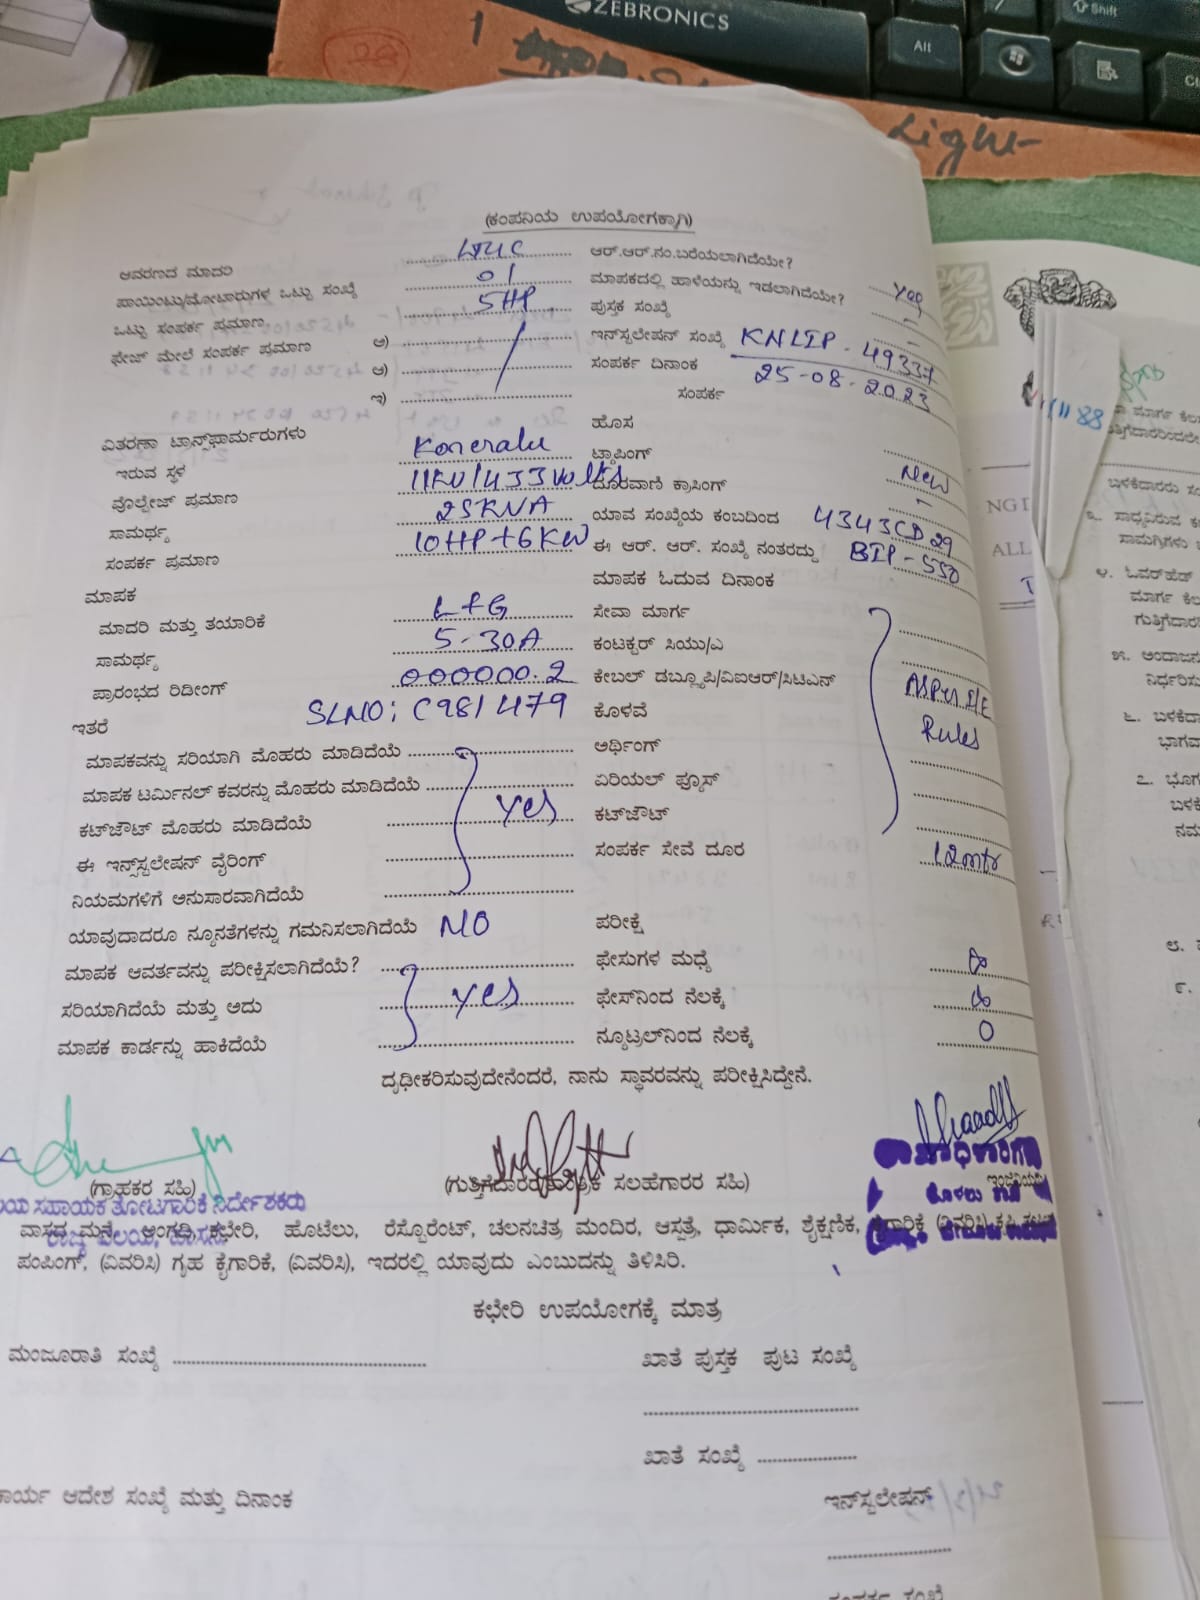 ZEBRONICS
Shift
Alt
1
Light
(ಕಂಪನಿಯ ಉಪಯೋಗಕ್ಕಾಗಿ)
ಆವರಣದ ಮಾದರಿ ಆರ್.ಆರ್.ನಂ.ಬರೆಯಲಾಗಿದೆಯೇ?
ಪಾಯಿಂಟು/ಮೋಟಾರುಗಳ ಒಟ್ಟು ಸಂಖ್ಯೆ 01 ಮಾಪಕದಲ್ಲಿ ಹಾಳೆಯನ್ನು ಇಡಲಾಗಿದೆಯೇ? yes
ಒಟ್ಟು ಸಂಪರ್ಕ ಪ್ರಮಾಣ 5HP ಪುಸ್ತಕ ಸಂಖ್ಯೆ -
ಫೇಜ್ ಮೇಲೆ ಸಂಪರ್ಕ ಪ್ರಮಾಣ ಅ) ಇನ್‌ಸ್ಟಲೇಷನ್ ಸಂಖ್ಯೆ KNLIP - 49337
ಆ) ಸಂಪರ್ಕ ದಿನಾಂಕ 25-08-2023
ಇ) ಸಂಪರ್ಕ
ವಿತರಣಾ ಟ್ರಾನ್ಸ್‌ಫಾರ್ಮರುಗಳು ಹೊಸ
ಇರುವ ಸ್ಥಳ Koneralu ಟ್ಯಾಪಿಂಗ್ New
ವೊಲ್ಟೇಜ್ ಪ್ರಮಾಣ 11KV/433Volts ದೂರವಾಣಿ ಕ್ರಾಸಿಂಗ್ -
ಸಾಮರ್ಥ್ಯ 25KVA ಯಾವ ಸಂಖ್ಯೆಯ ಕಂಬದಿಂದ 4343CD29
ಸಂಪರ್ಕ ಪ್ರಮಾಣ 10HP+6KW ಈ ಆರ್. ಆರ್. ಸಂಖ್ಯೆ ನಂತರದ್ದು BIP-550
ಮಾಪಕ ಮಾಪಕ ಓದುವ ದಿನಾಂಕ
ಮಾದರಿ ಮತ್ತು ತಯಾರಿಕೆ L+G ಸೇವಾ ಮಾರ್ಗ
ಸಾಮರ್ಥ್ಯ 5-30A ಕಂಟಕ್ಟರ್ ಸಿಯು/ಎ
ಪ್ರಾರಂಭದ ರಿಡೀಂಗ್ 000000.2 ಕೇಬಲ್ ಡಬ್ಲ್ಯೂಪಿ/ವಿಐಆರ್/ಸಿಟಿಎನ್ ASPer I/E
ಇತರೆ SLNO: C981479 ಕೊಳವೆ Rules
ಮಾಪಕವನ್ನು ಸರಿಯಾಗಿ ಮೊಹರು ಮಾಡಿದೆಯೆ ಅರ್ಥಿಂಗ್
ಮಾಪಕ ಟರ್ಮಿನಲ್ ಕವರನ್ನು ಮೊಹರು ಮಾಡಿದೆಯೆ ಏರಿಯಲ್ ಫ್ಯೂಸ್
ಕಟ್‌ಔಟ್ ಮೊಹರು ಮಾಡಿದೆಯೆ yes ಕಟ್‌ಔಟ್
ಈ ಇನ್‌ಸ್ಟಲೇಷನ್ ವೈರಿಂಗ್ ಸಂಪರ್ಕ ಸೇವೆ ದೂರ 12mtr
ನಿಯಮಗಳಿಗೆ ಅನುಸಾರವಾಗಿದೆಯೆ
ಯಾವುದಾದರೂ ನ್ಯೂನತೆಗಳನ್ನು ಗಮನಿಸಲಾಗಿದೆಯೆ NO ಪರೀಕ್ಷೆ
ಮಾಪಕ ಆವರ್ತವನ್ನು ಪರೀಕ್ಷಿಸಲಾಗಿದೆಯೆ? ಫೇಸುಗಳ ಮಧ್ಯೆ ∞
ಸರಿಯಾಗಿದೆಯೆ ಮತ್ತು ಅದು yes ಫೇಸ್‌ನಿಂದ ನೆಲಕ್ಕೆ ∞
ಮಾಪಕ ಕಾರ್ಡನ್ನು ಹಾಕಿದೆಯೆ ನ್ಯೂಟ್ರಲ್‌ನಿಂದ ನೆಲಕ್ಕೆ 0
ದೃಢೀಕರಿಸುವುದೇನೆಂದರೆ, ನಾನು ಸ್ಥಾವರವನ್ನು ಪರೀಕ್ಷಿಸಿದ್ದೇನೆ.
(ಗ್ರಾಹಕರ ಸಹಿ) ಸಲಹೆಗಾರರ ಸಹಿ)
ಸಹಾಯಕ ತೋಟಗಾರಿಕೆ ನಿರ್ದೇಶಕರು
ವಾಸದ ಮನೆ, ಅಂಗಡಿ, ಕಛೇರಿ, ಹೊಟೆಲು, ರೆಸ್ಟೊರೆಂಟ್, ಚಲನಚಿತ್ರ ಮಂದಿರ, ಆಸ್ಪತ್ರೆ, ಧಾರ್ಮಿಕ, ಶೈಕ್ಷಣಿಕ, ಕೈಗಾರಿಕೆ (ವಿವರಿಸಿ)
ಪಂಪಿಂಗ್, (ವಿವರಿಸಿ) ಗೃಹ ಕೈಗಾರಿಕೆ, (ವಿವರಿಸಿ), ಇದರಲ್ಲಿ ಯಾವುದು ಎಂಬುದನ್ನು ತಿಳಿಸಿರಿ.
ಕಛೇರಿ ಉಪಯೋಗಕ್ಕೆ ಮಾತ್ರ
ಮಂಜೂರಾತಿ ಸಂಖ್ಯೆ ಖಾತೆ ಪುಸ್ತಕ ಪುಟ ಸಂಖ್ಯೆ
ಖಾತೆ ಸಂಖ್ಯೆ
ಕಾರ್ಯ ಆದೇಶ ಸಂಖ್ಯೆ ಮತ್ತು ದಿನಾಂಕ ಇನ್‌ಸ್ಟಲೇಷನ್
ಸಂಪರ್ಕ ಸಂಖ್ಯೆ